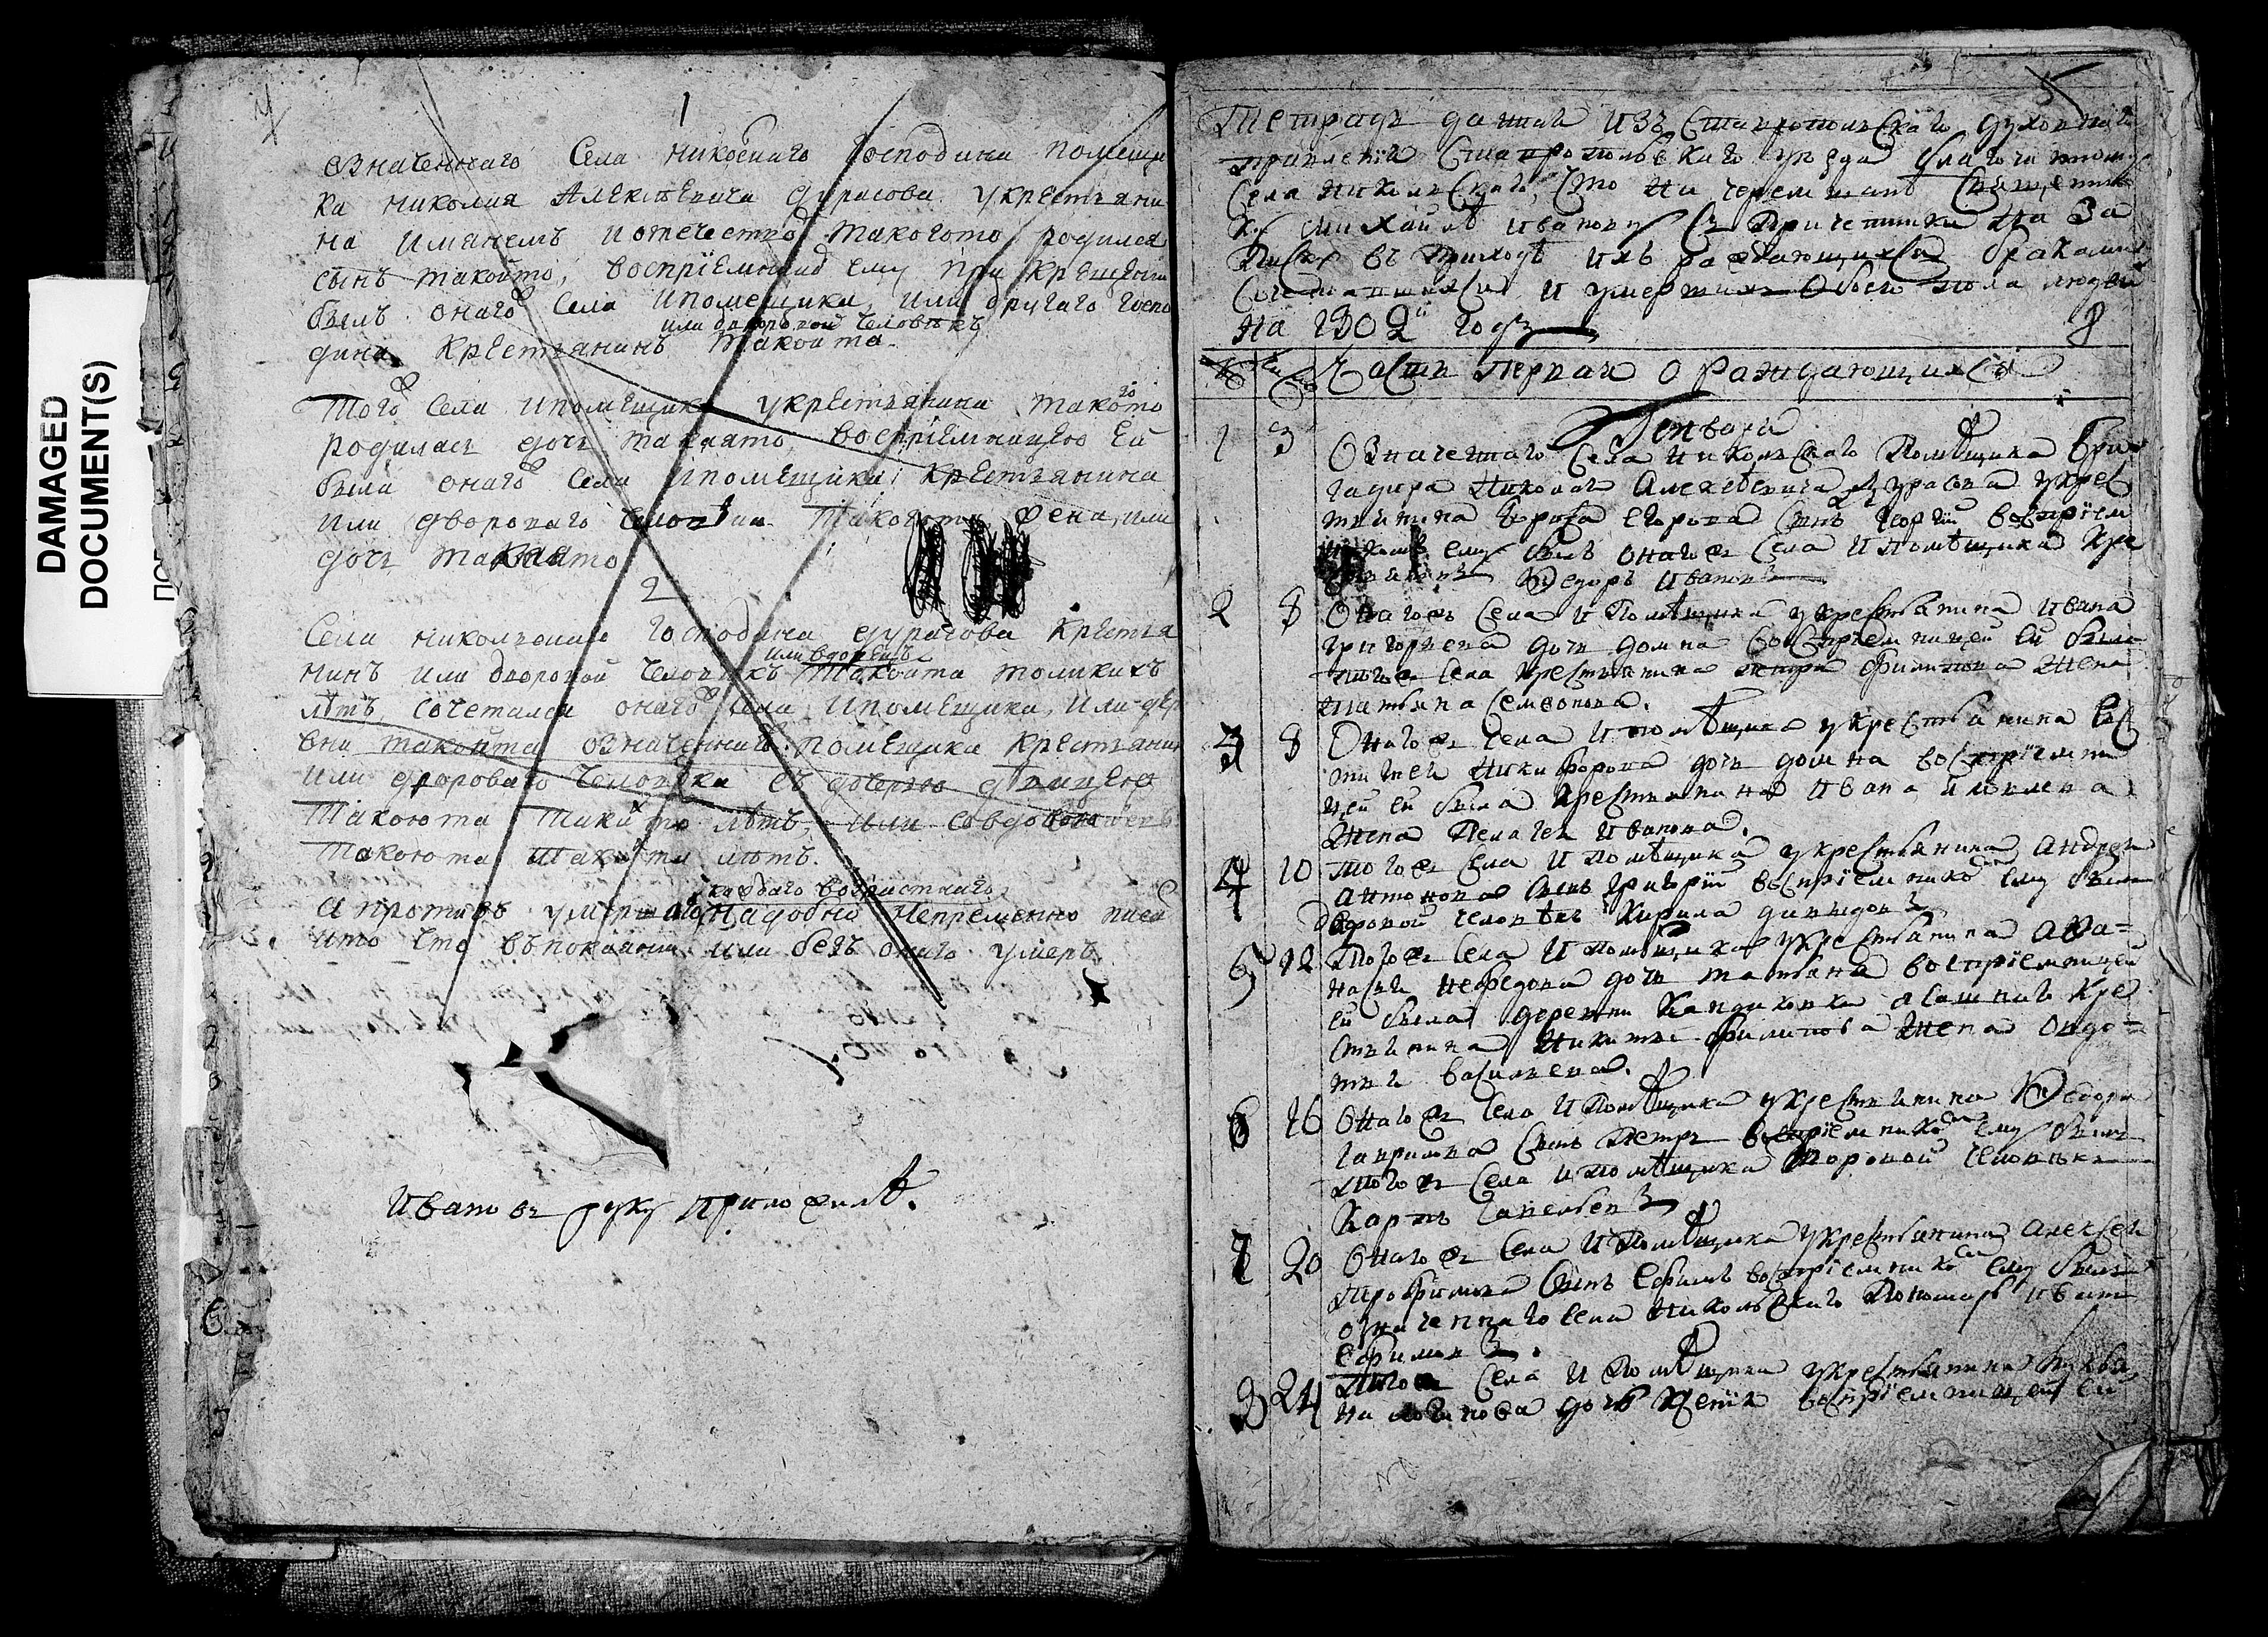 DAMAGED
DOCUMENT(S)
4
1
означеннаго Села никоскаго Господина помещи
ка николая Алексѣевича дурасова укрестьяни
на имянемъ иотечество такогото родился
сынъ такойто, воспріемникъ ему при крещеніи
былъ онаго Села ипомещика, или другаго Госпо
или дворовой человѣкъ
дина крестьянинъ такойта
Того Села ипомещика укрестьянина такогото
родилась дочь такаято, воспріемницею ей
была онаго Села ипомещика крестьянина
или двороваго человѣка такогото жена, или
дочь такаято
2
Села николскаго Господина дурасова крестья
или вдовецъ
нинъ или дворовой человѣкъ такойта толикихъ
лѣтъ сочетался онаго Села ипомещика, или дер
вни такойта означеннаго помещика крестьянин
или двороваго человѣка съ дочерью девицею
такоюта такихто лѣтъ, или совдовою
такоюта такихта лѣтъ.
каждаго возрастнаго
а противъ умершаго надобно непременно писа
что въпокаянии или безъ онаго умеръ
Ивановъ руку приложилъ.
5
Тетрадь данная изъ Ставропольскаго духовнаго
правленія Ставропольскаго уезда благочинному
Села Никольскаго, что на черемшанѣ Священни
ку Михайлѣ иванову съ причетники на за
писку въ приходѣ ихъ раждающихся браками
Сочетавшихся и умерших обоего пола людей
на 1802й годъ
8
Часть первая о раждающихся
Генваря
1 3 Означеннаго Села никольскаго помѣщика бри
гадира Николая Алексѣевича Дурасова укрес
тьянина бориса егорова Сынъ георгій воспріем
никомъ ему былъ оногожъ Села и помѣщика кре
стьянинъ Федоръ Ивановъ
2 8 Оногожъ Села и помѣщика укрестьянина ивана
григорьева дочь домна воспріемницей ей была
тогожъ Села крестьянина петра филипова жена
татьяна семенова.
3 8 Оногожъ Села и помѣщика укрестьянина евс
тигнея никифорова дочь домна воспріемни
цей ей была крестьянина ивана
жена Пелагея иванова.
4 10 тогожъ Села и помѣщика укрестьянина андрея
антонова сынъ григорій воспріемникомъ ему былъ
дворовой человѣкъ Кирила давыдовъ
5 12 Тогожъ Села и помѣщика укрестьянина афа=
насья нефедова дочь татьяна воспріемницей
ей была деревни Кандаковки ясашнаго кре
стьянина Никиты филипова жена овдо=
тья васильева.
6 16 Оногожъ Села и помѣщика укрестьянина Федора
гаврилова Сынъ Петръ воспріемникомъ ему былъ
тогожъ Села и помѣщика дворовой человѣкъ
Карпъ Савельевъ
7 20 Оногожъ Села и помѣщика укрестьянина алексея
трофимова Сынъ Ефимъ воспріемникомъ ему былъ
означеннаго села никольскаго пономарь иванъ
ефимовъ.
8 24 Тогожъ Села и помѣщика укрестьянина
на логинова дочь Ксенія воспріемницей ей